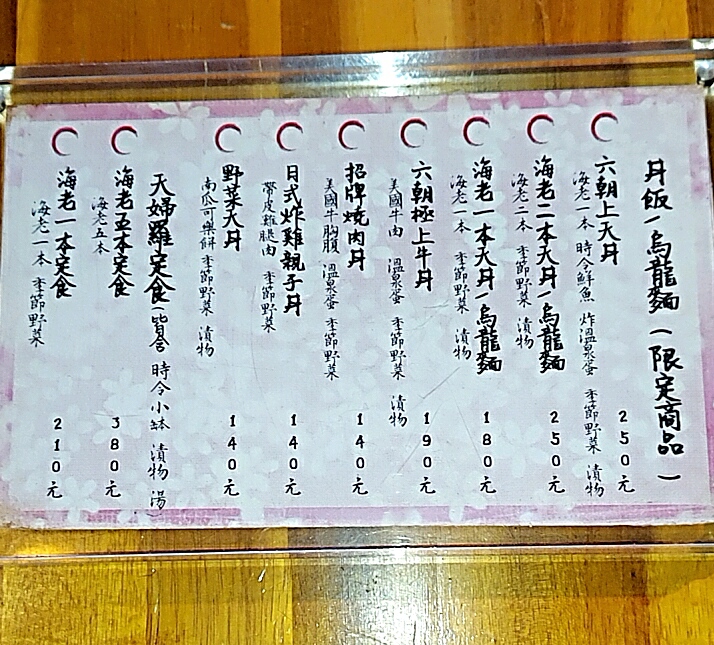 丼飯/烏龍麵(限定商品)
六朝上天丼 250元
海老一本 時令鮮魚 炸溫泉蛋 季節野菜 漬物
海老二本天丼/烏龍麵 250元
海老二本 季節野菜 漬物
海老一本天丼/烏龍麵 180元
海老一本 季節野菜 漬物
六朝極上牛丼 190元
美國牛肉 溫泉蛋 季節野菜 漬物
招牌燒肉丼 140元
美國牛胸腹 溫泉蛋 季節野菜
日式炸雞親子丼 140元
帶皮雞腿肉 季節野菜
野菜天丼 140元
南瓜可樂餅 季節野菜 漬物
天婦羅定食(皆含 時令小缽 漬物 湯
海老五本定食 380元
海老五本
海老一本定食 210元
海老一本 季節野菜